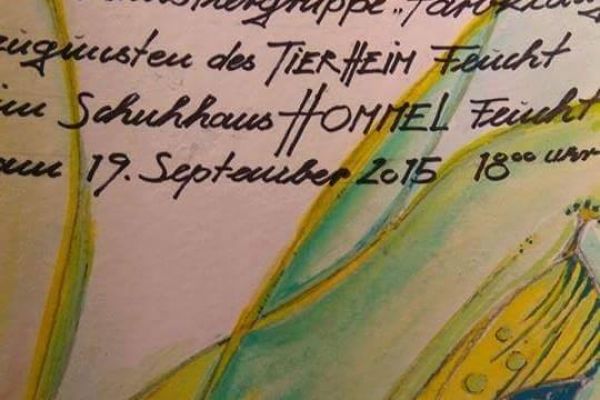 Künstlergruppe „Farbklang
zugunsten des TIERHEIM Feucht
im Schuhhaus HOMMEL Feucht
am 19. September 2015 18⁰⁰ Uhr